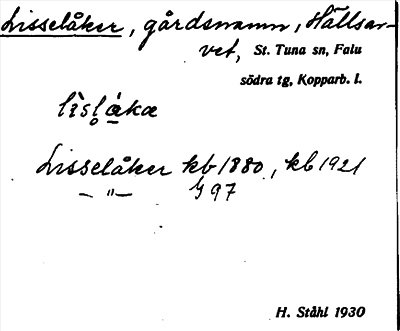 Lisselåker, gårdsnamn, Hällsar-
vet, St. Tuna sn, Falu
södra tg, Kopparb. l.
lìsl̥á̱kæ
Lisselåker kb 1880, kb 1921
— " — G 97
H. Ståhl 1930